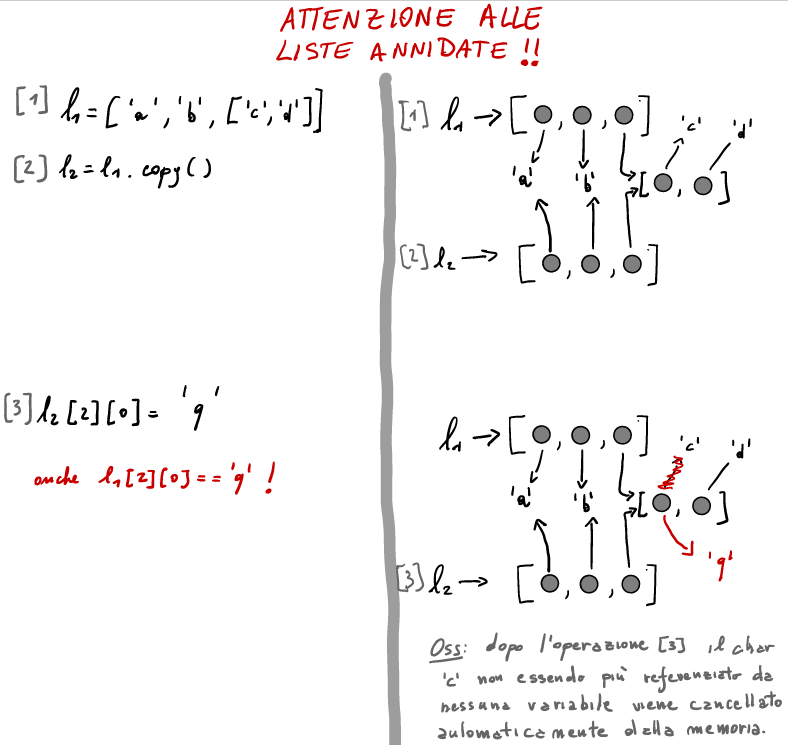 ATTENZIONE ALLE
LISTE ANNIDATE !!
[1] l₁=['a','b',['c','d']]
[2] l₂=l₁.copy()
[3] l₂[2][0]= 'q'
anche l₁[2][0]=='q' !
[1] l₁→[ , , ]
'c' 'd'
'a' 'b' [ , ]
[2] l₂→ [ , , ]
l₁→[ , , ]
'c' 'd'
'a' 'b' [ , ]
'q'
[3] l₂→ [ , , ]
Oss: dopo l'operazione [3] il char
'c' non essendo più referenziato da
nessuna variabile viene cancellato
automaticamente dalla memoria.